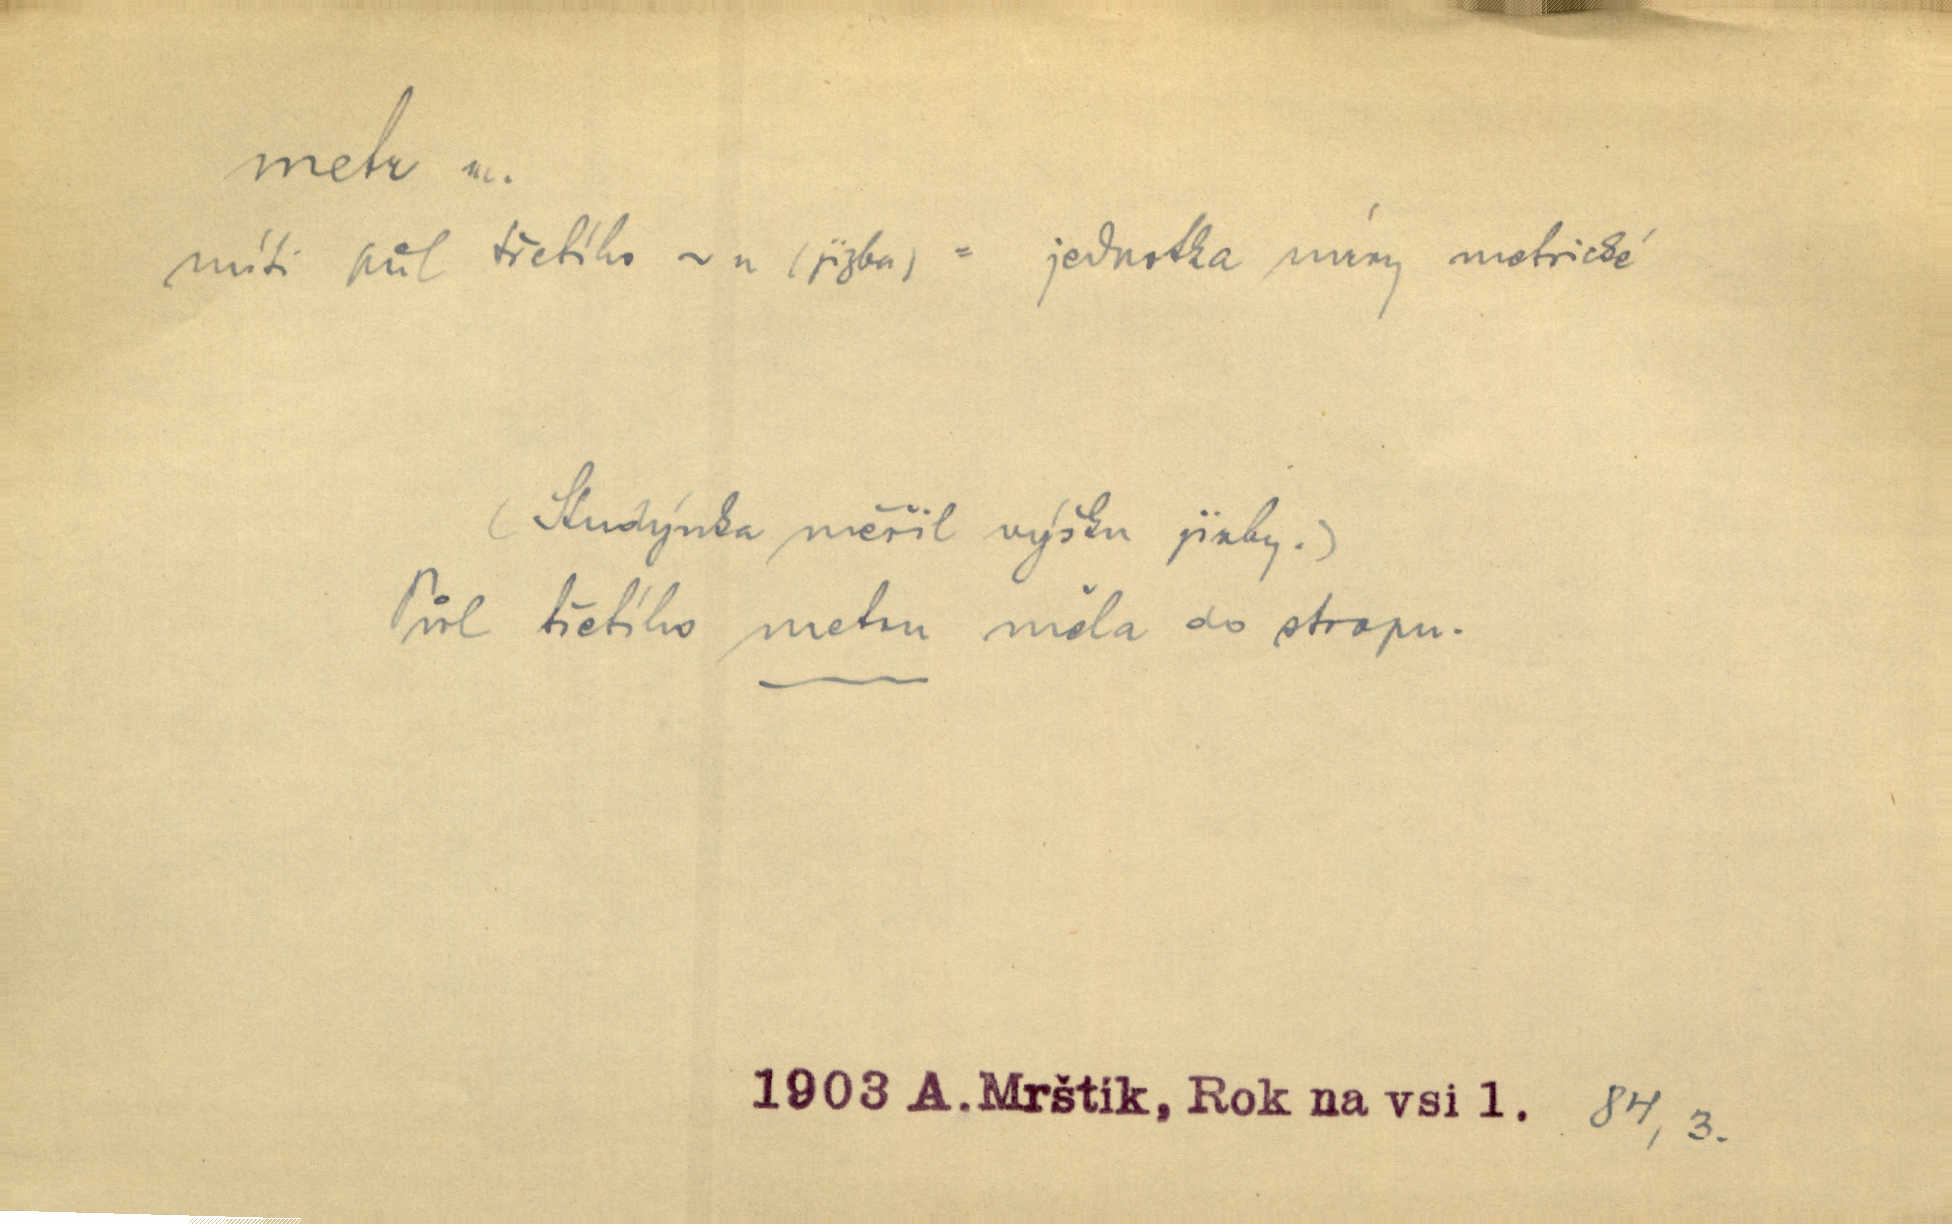 metr m.
míti půl třetího ~ u (jizba) = jednotka míry metrické
(Studýnka měřil výšku jizby.)
Půl třetího metru měla do stropu.
1903 A. Mrštík, Rok na vsi 1. 84, 3.